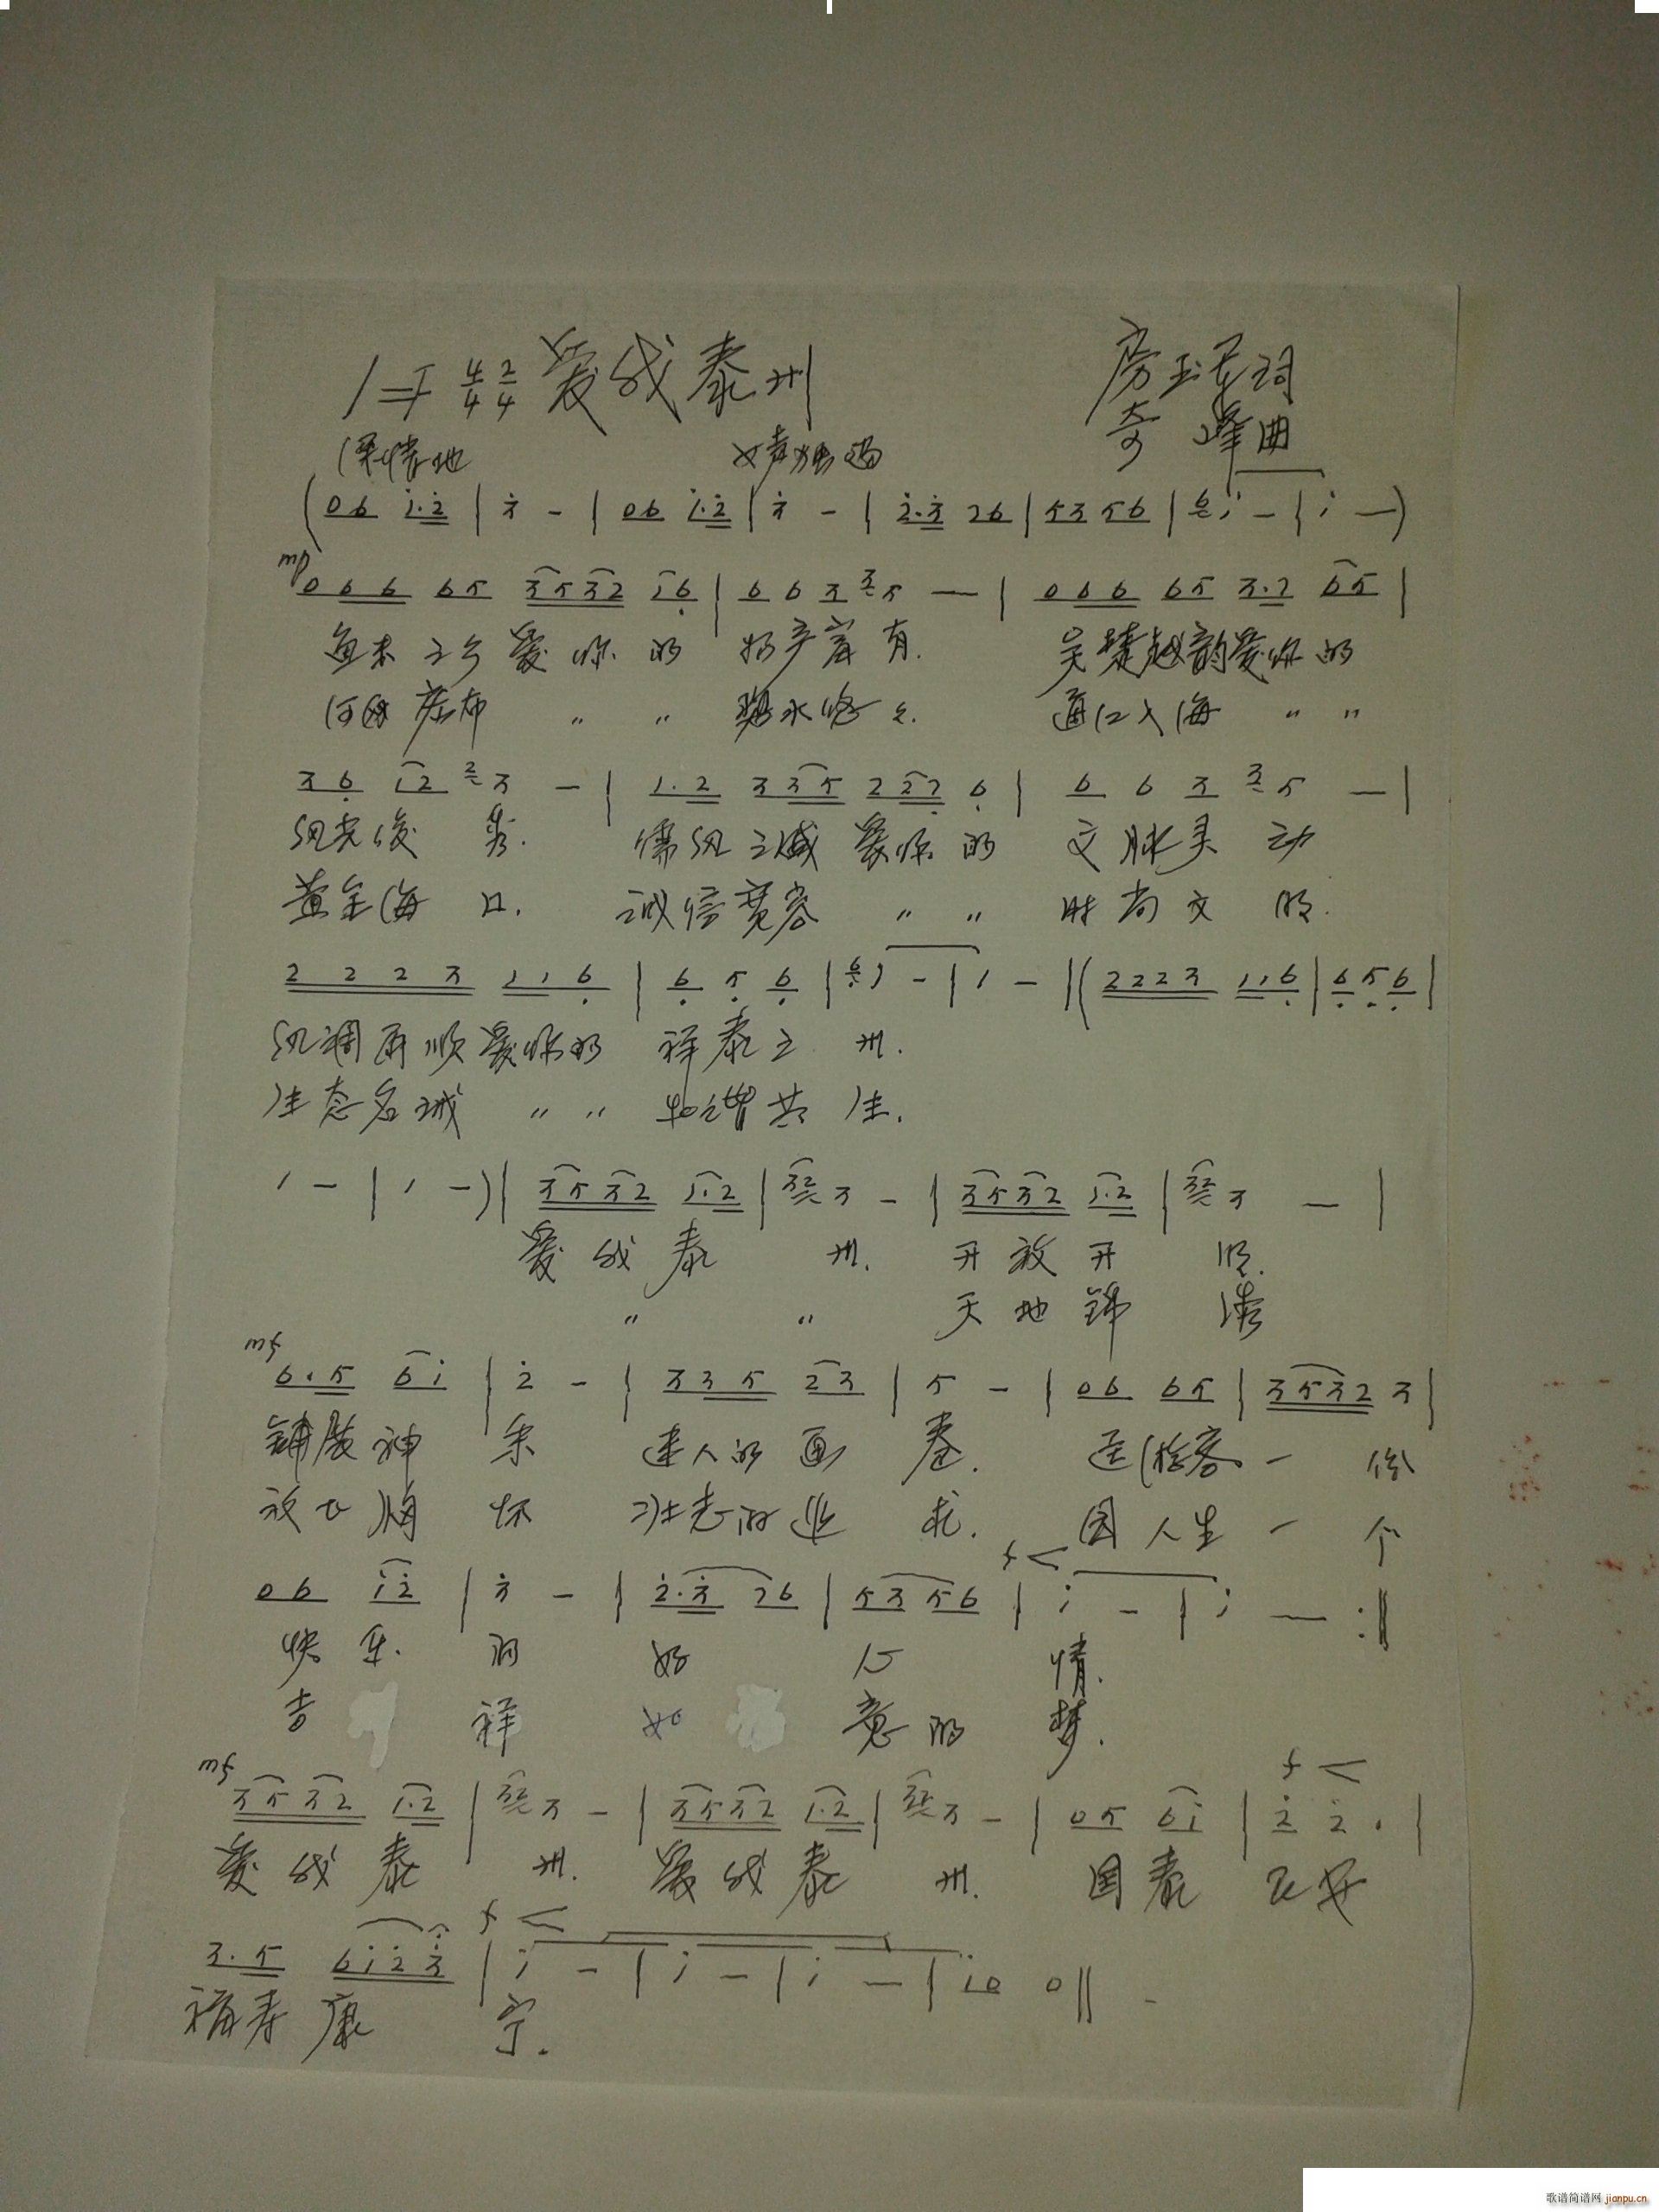 1=F 4/4 2/4 爱我泰州 房玉军词
深情地 女声独唱 奇峰曲
(06 i.2 | 3 - | 06 i.2 | 3 - | 2.3 26 | 53 56 | 6 i - | i —)
mp 066 65 3532 16 | 6 6 3 3 5 — | 066 65 3.2 65 |
鱼米之乡爱你的 物产富有. 吴楚越韵爱你的
河网密布 〃 〃 碧水悠悠. 通江入海 〃 〃
3 6 12 2 3 - | 1.2 335 227 6 | 6 6 3 3 5 — |
风光俊秀. 儒风之盛爱你的 文脉灵动
黄金海口. 诚信宽容 〃 〃 时尚文明.
2 2 2 3 1 1 6 | 6 5 6 | 6 1 - | 1 - | (2223 116 | 656 |
风调雨顺爱你的 祥泰之州.
生态名城 〃 〃 和谐共生.
1 - | 1 -) | 3532 1.2 | 32 3 - | 3532 1.2 | 32 3 — |
爱我泰州. 开放开明.
〃 〃 天地锦绣
mf 6.5 6i | 2 - | 335 23 | 5 - | 06 65 | 3532 3 |
铺展神采 迷人的画卷. 送游客一份
放飞胸怀 壮志的追求. 圆人生一个
f <
06 i2 | 3 - | 2.3 26 | 53 56 | i - | i — :||
快乐. 的好心情.
吉祥如意的梦.
mf f <
3532 1.2 | 32 3 - | 3532 1.2 | 32 3 - | 05 6i | 2 2 . |
爱我泰州. 爱我泰州. 国泰民安
f <
3.5 6i23 | i - | i - | i — | i0 0 ||
福寿康宁.
歌谱简谱网 jianpu.cn